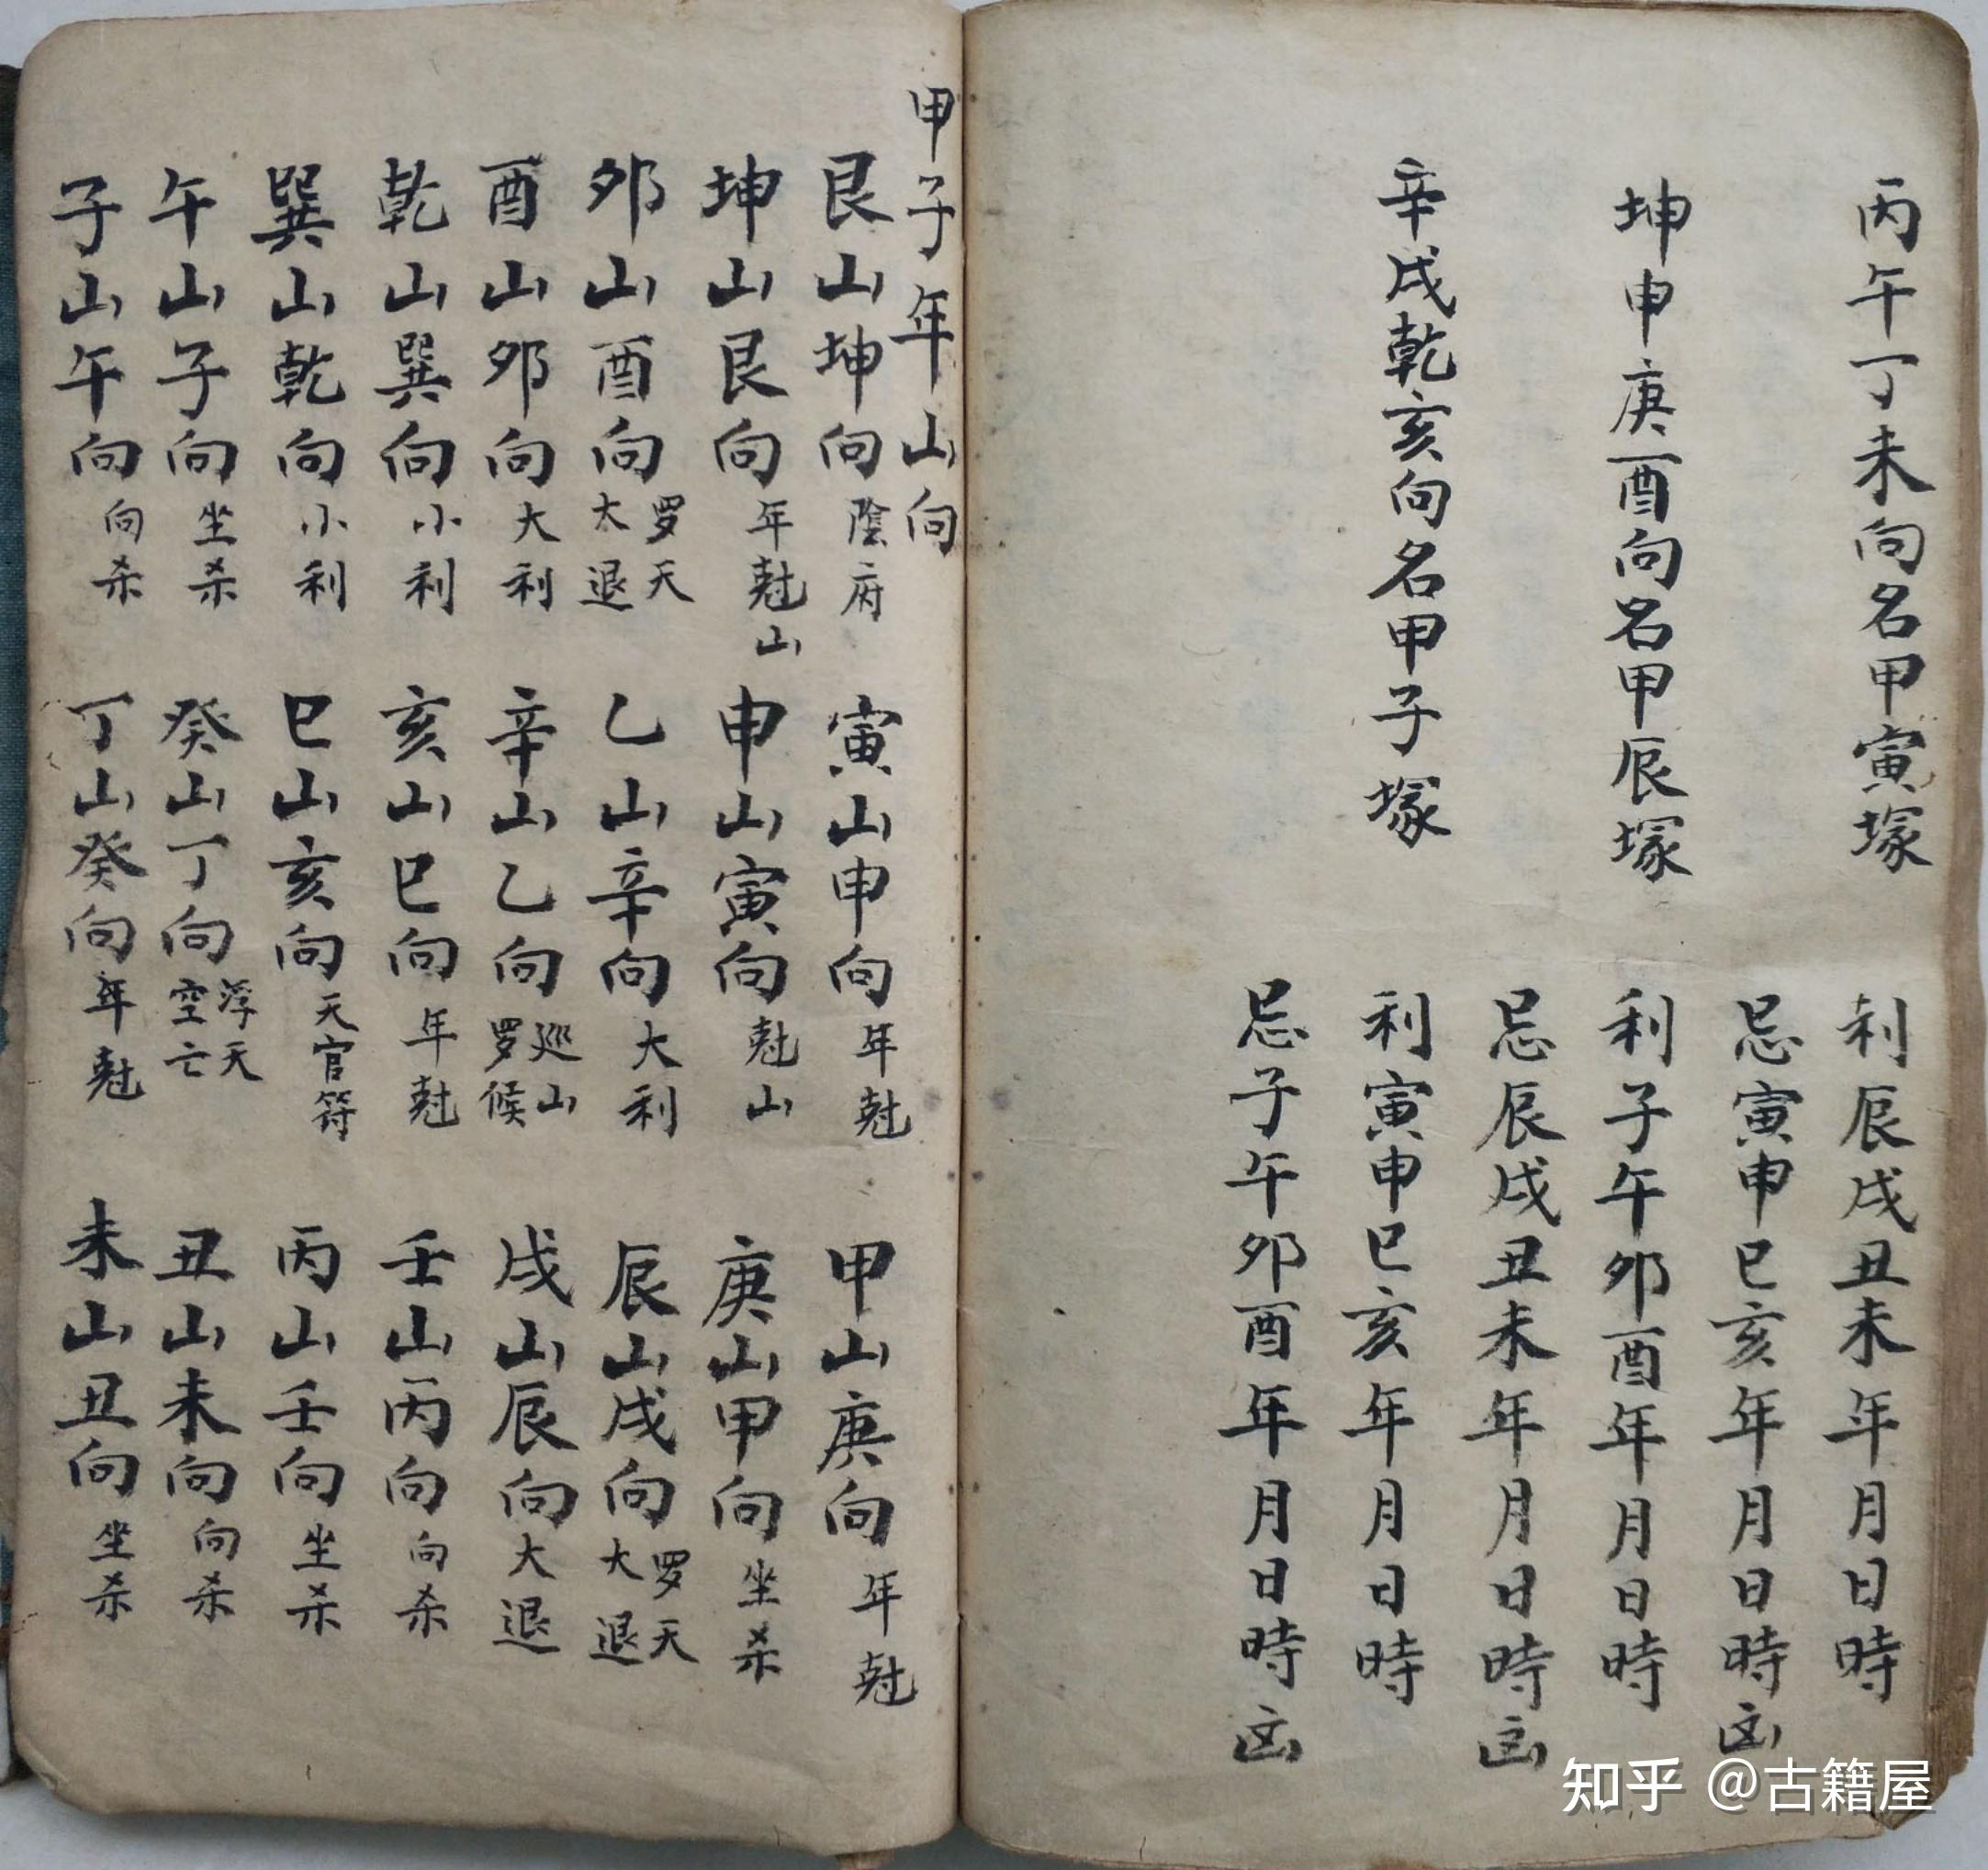 丙午丁未向名甲寅塚
利辰戌丑未年月日時
忌寅申巳亥年月日時凶
坤申庚酉向名甲辰塚
利子午卯酉年月日時
忌辰戌丑未年月日時凶
辛戌乾亥向名甲子塚
利寅申巳亥年月日時
忌子午卯酉年月日時凶
甲子年山向
艮山坤向陰府 寅山申向年尅 甲山庚向年尅
坤山艮向年尅山 申山寅向尅山 庚山甲向坐杀
卯山酉向罗天大退 乙山辛向大利 辰山戌向罗天大退
酉山卯向大利 辛山乙向巡山罗候 戌山辰向大退
乾山巽向小利 亥山巳向年尅 壬山丙向向杀
巽山乾向小利 巳山亥向天官符 丙山壬向坐杀
午山子向坐杀 癸山丁向浮天空亡 丑山未向向杀
子山午向向杀 丁山癸向年尅 未山丑向坐杀
知乎 @古籍屋